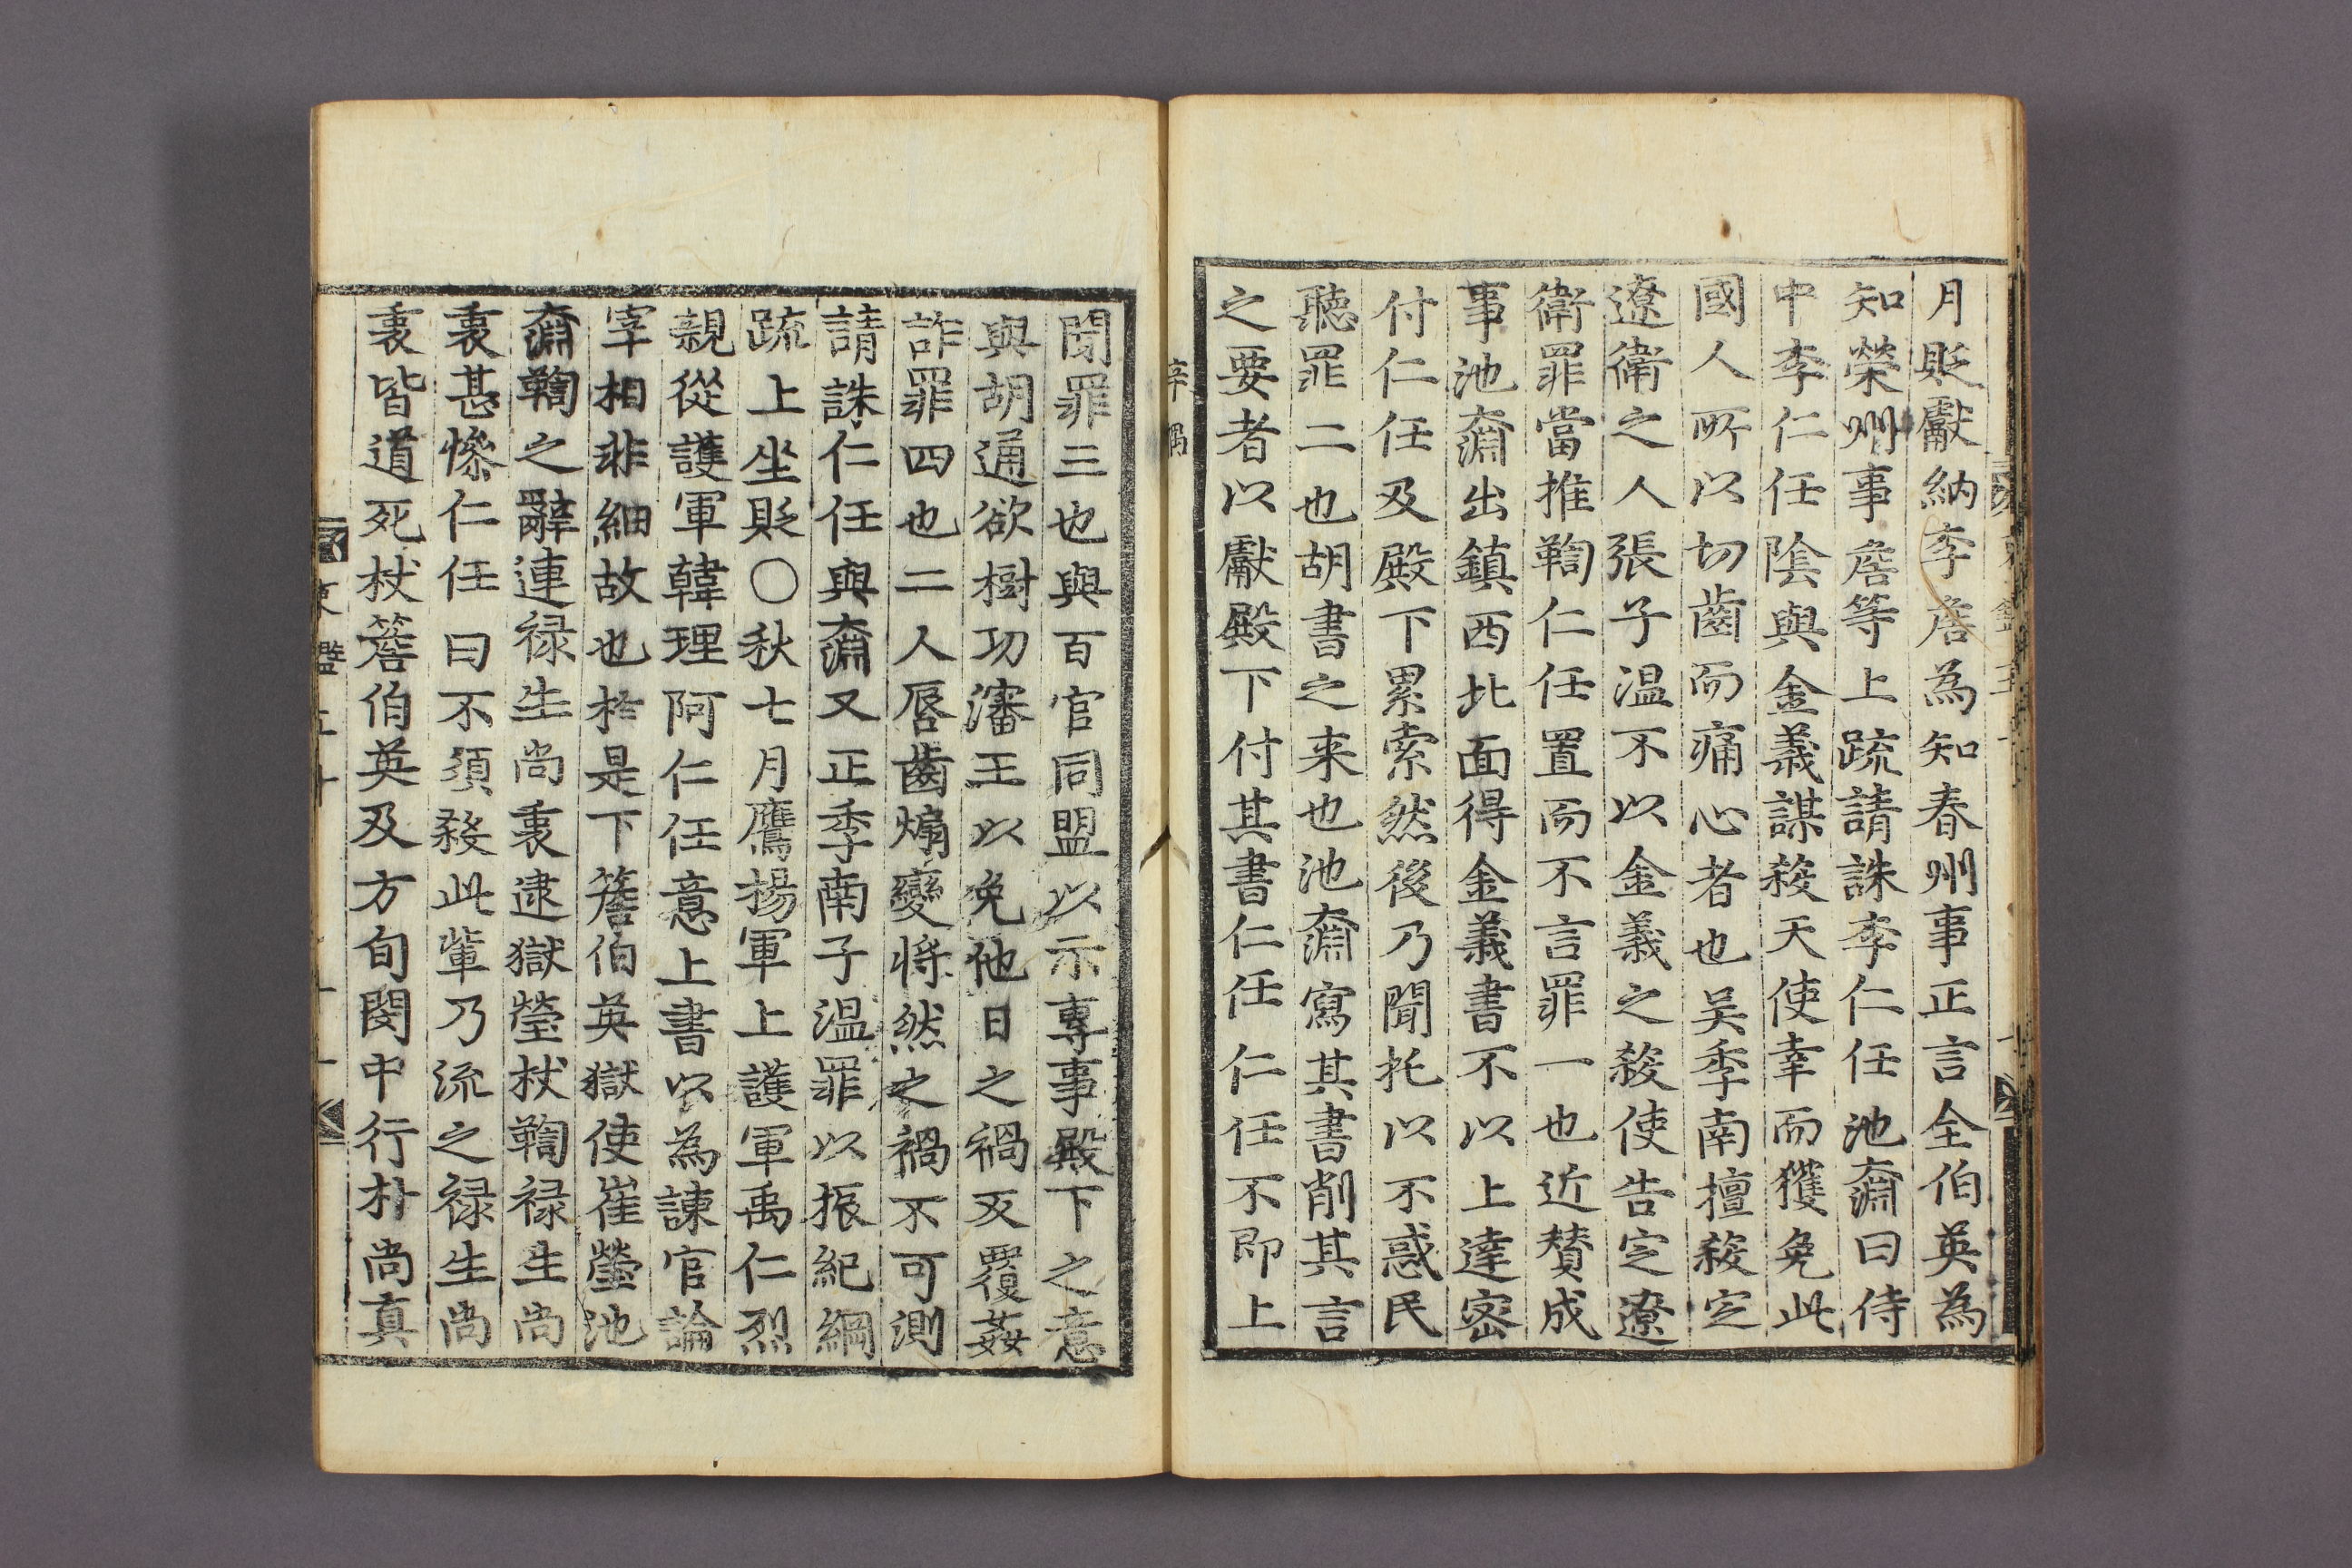 月貶獻納李詹為知春州事正言全伯英為
知榮州事詹等上疏請誅李仁任池奫曰侍
中李仁任陰與金義謀殺天使幸而獲免此
國人所以切齒而痛心者也吴季南擅殺定
遼衛之人張子温不以金義之殺使告定遼
衛罪當推鞫仁任置而不言罪一也近賛成
事池奫出鎮西北面得金義書不以上達密
付仁任及殿下累索然後乃聞托以不惑民
聽罪二也胡書之来也池奫寫其書削其言
之要者以獻殿下付其書仁任仁任不即上
辛禑
聞罪三也與百官同盟以示專事殿下之意
與胡通欲樹功瀋王以免他日之禍反覆姦
詐罪四也二人唇齒煽變将然之禍不可測
請誅仁任與奫又正季南子温罪以振紀綱
疏上坐貶〇秋七月鷹揚軍上護軍禹仁烈
親從護軍韓理阿仁任意上書以為諫官論
宰相非細故也於是下詹伯英獄使崔瑩池
奫鞫之辭連禄生尚衷逮獄瑩杖鞫禄生尚
衷甚慘仁任曰不須殺此輩乃流之禄生尚
衷皆道死杖詹伯英及方旬閔中行朴尚真